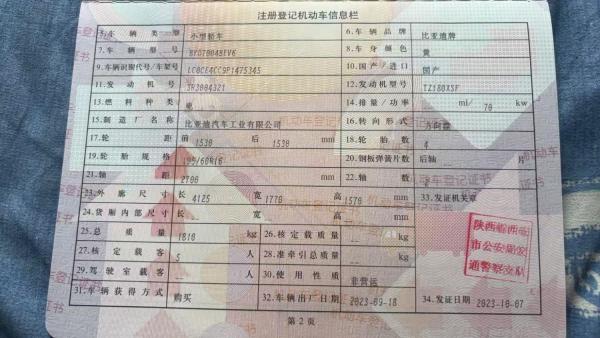 注册登记机动车信息栏
5.车辆类型 小型轿车 6.车辆品牌 比亚迪牌
7.车辆型号 BYD7004BEV6 8.车身颜色 黄
9.车辆识别代号/车架号 LC0CE4CC9P1475345 10.国产/进口 国产
11.发动机号 3H3004321 12.发动机型号 TZ180XSF
13.燃料种类 电 14.排量/功率 ml/ 70 kw
15.制造厂名称 比亚迪汽车工业有限公司 16.转向形式 方向盘
17.轮距 前 1530 后 1530 mm 18.轮胎数 4
19.轮胎规格 195/60R16 20.钢板弹簧片数 后轴 片
21.轴距 2700 mm 22.轴数
23.外廓尺寸 长 4125 宽 1770 高 1570 mm 33.发证机关章
24.货厢内部尺寸 长 宽 高 mm
25.总质量 1810 kg 26.核定载质量 -- kg
27.核定载客 5 人 28.准牵引总质量 -- kg
29.驾驶室载客 -- 人 30.使用性质 非营运
31.车辆获得方式 购买 32.车辆出厂日期 2023-09-18 34.发证日期 2023-10-07
陕西省西安
市公安局交
通警察支队
第2页